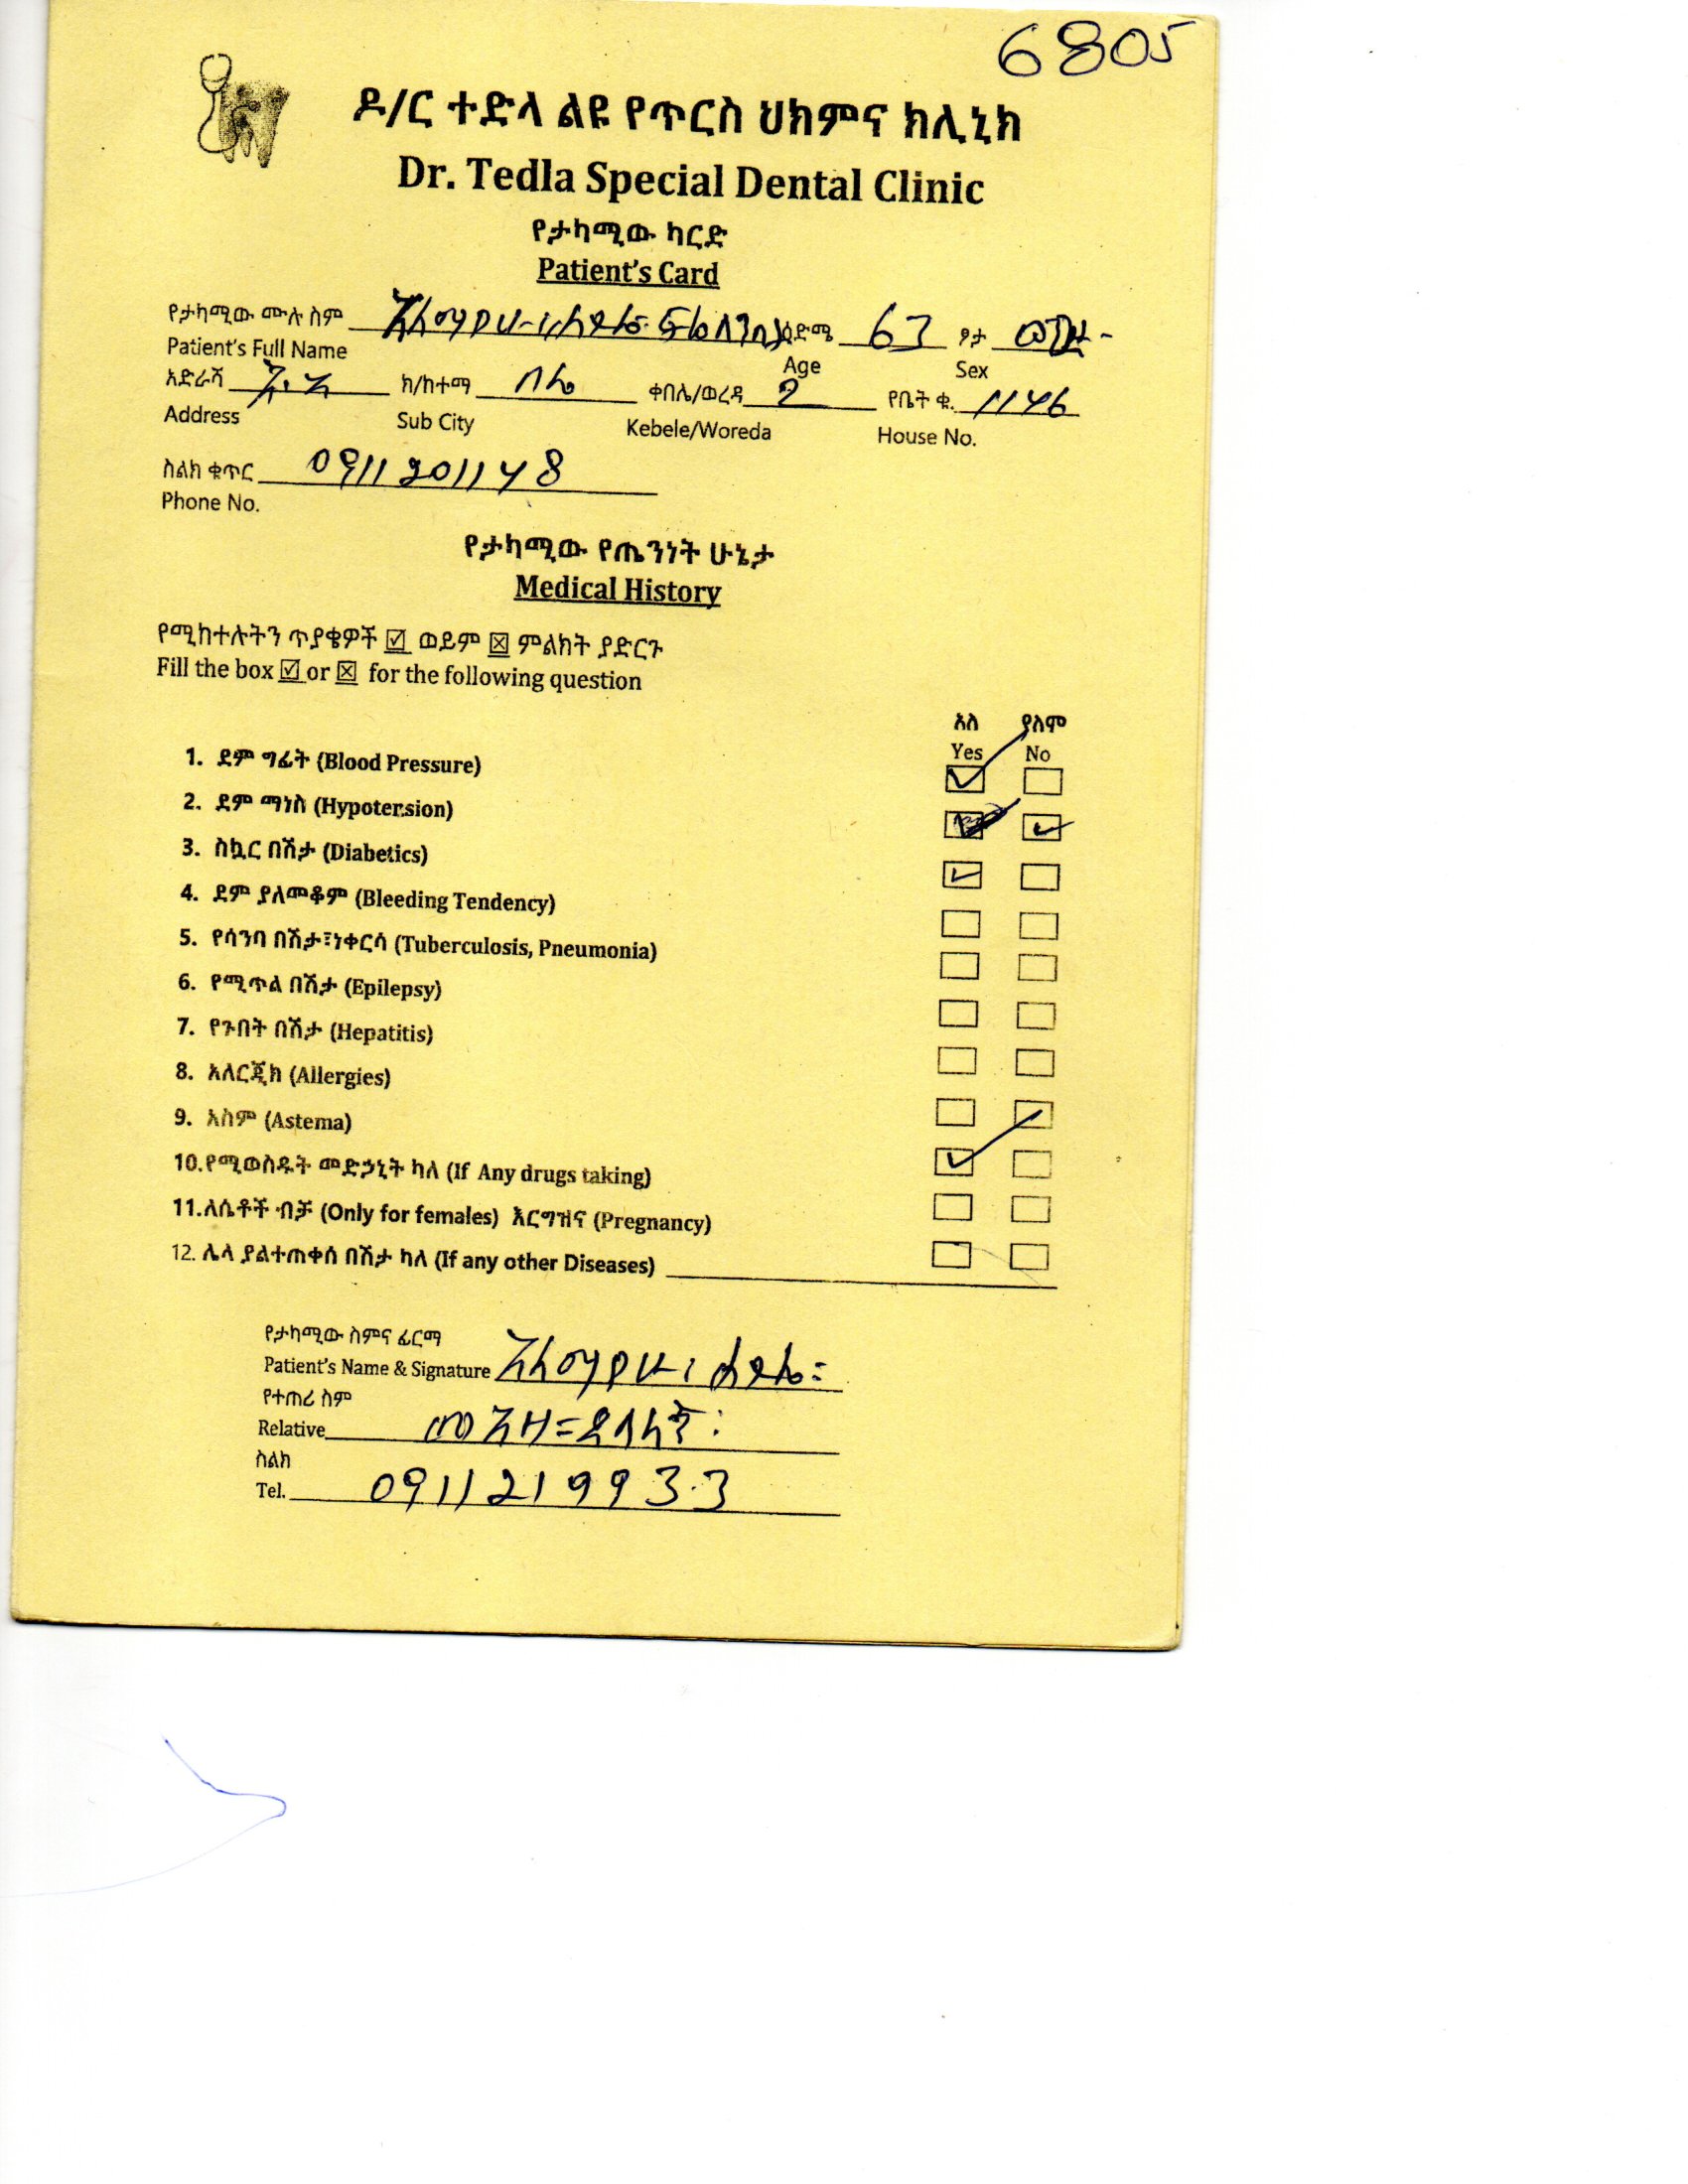 6805
ዶ/ር ተድላ ልዩ የጥርስ ህክምና ክሊኒክ
Dr. Tedla Special Dental Clinic
የታካሚው ካርድ
Patient's Card
የታካሚው ሙሉ ስም አለማየሁ ዕድሜ 63 ፆታ ወንድ
Patient's Full Name Age Sex
አድራሻ አ.አ ክ/ከተማ ቦሌ ቀበሌ/ወረዳ 2 የቤት ቁ. 1146
Address Sub City Kebele/Woreda House No.
ስልክ ቁጥር 0911201148
Phone No.
የታካሚው የጤንነት ሁኔታ
Medical History
የሚከተሉትን ጥያቄዎች ☑ ወይም ☒ ምልክት ያድርጉ
Fill the box ☑ or ☒ for the following question
አለ የለም
Yes No
1. ደም ግፊት (Blood Pressure)
2. ደም ማነስ (Hypotension)
3. ስኳር በሽታ (Diabetics)
4. ደም ያለመቆም (Bleeding Tendency)
5. የሳንባ በሽታ፣ነቀርሳ (Tuberculosis, Pneumonia)
6. የሚጥል በሽታ (Epilepsy)
7. የጉበት በሽታ (Hepatitis)
8. አለርጂክ (Allergies)
9. አስም (Astema)
10.የሚወስዱት መድኃኒት ካለ (If Any drugs taking)
11.ለሴቶች ብቻ (Only for females) እርግዝና (Pregnancy)
12. ሌላ ያልተጠቀሰ በሽታ ካለ (If any other Diseases)
የታካሚው ስምና ፊርማ
Patient's Name & Signature አለማየሁ
የተጠሪ ስም
Relative
ስልክ
Tel. 0911219933